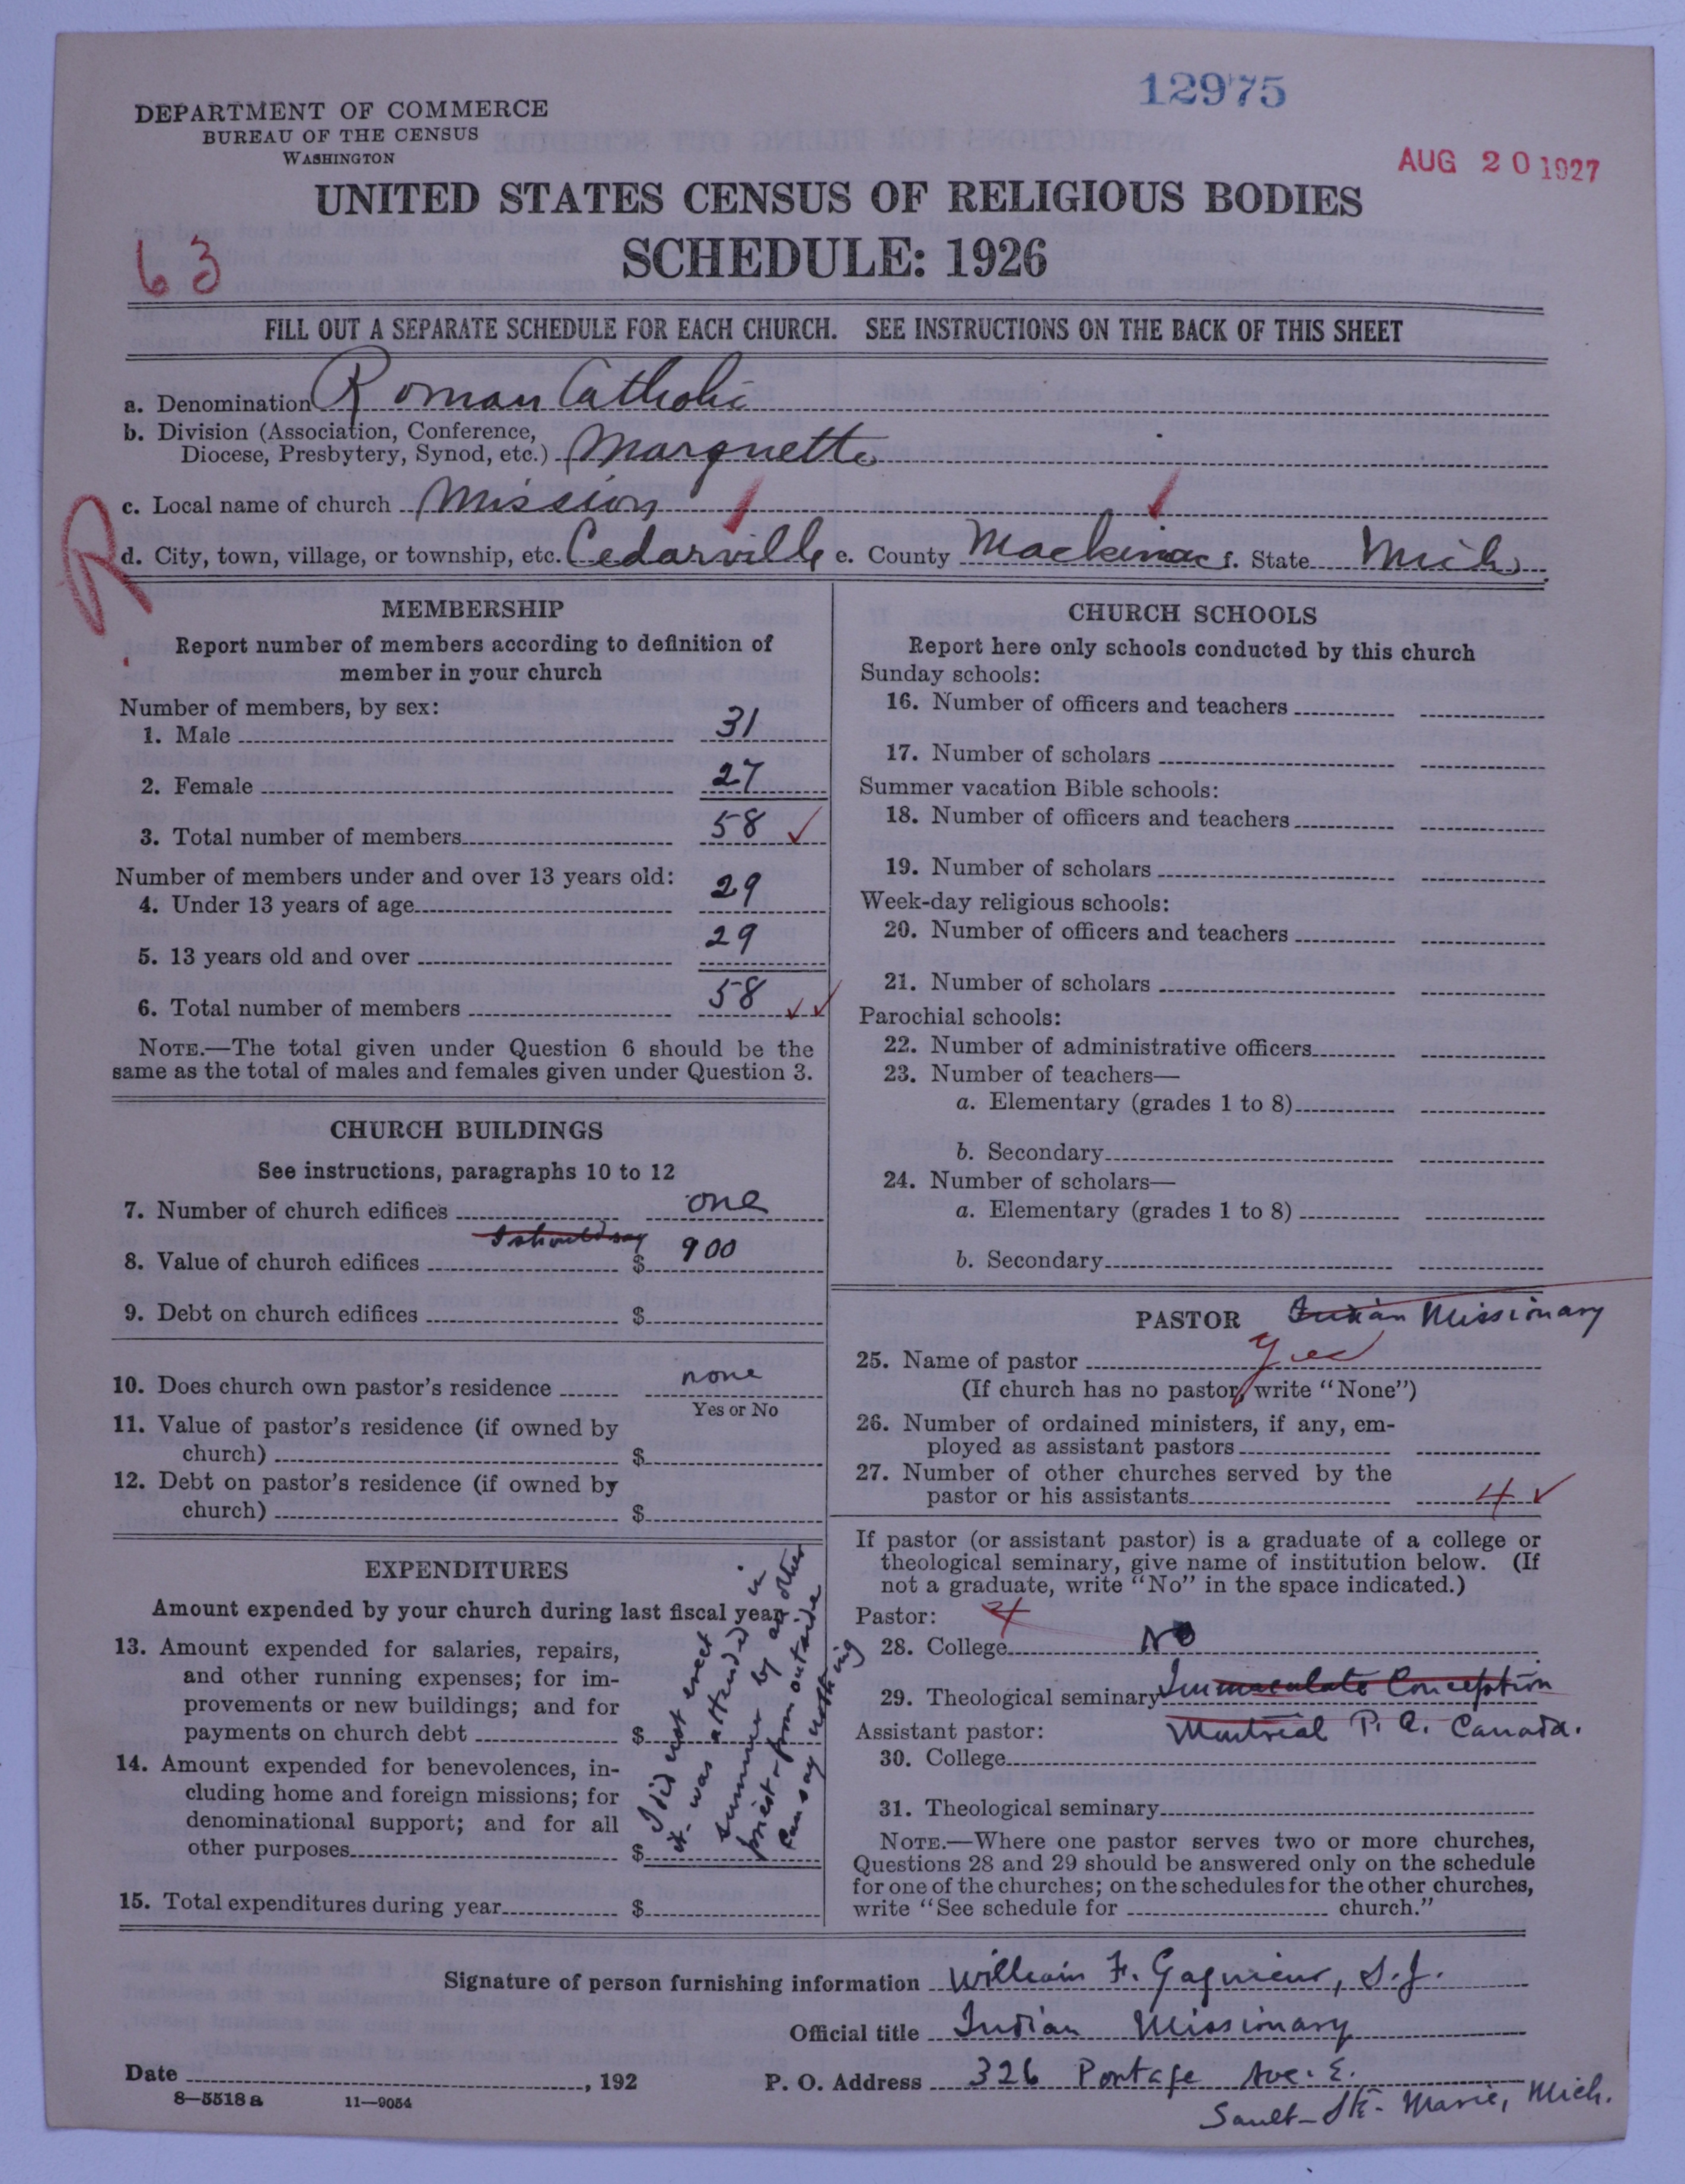 12975
DEPARTMENT OF COMMERCE
BUREAU OF THE CENSUS
WASHINGTON
AUG 20 1927
UNITED STATES CENSUS OF RELIGIOUS BODIES
SCHEDULE: 1926
63
FILL OUT A SEPARATE SCHEDULE FOR EACH CHURCH. SEE INSTRUCTIONS ON THE BACK OF THIS SHEET
a. Denomination Roman Catholic
b. Division (Association, Conference,
Diocese, Presbytery, Synod, etc.) Marquette
c. Local name of church Mission
R
d. City, town, village, or township, etc. Cedarville e. County Mackinac f. State Mich.
MEMBERSHIP
Report number of members according to definition of
member in your church
Number of members, by sex:
1. Male 31
2. Female 27
3. Total number of members 58 ✓
Number of members under and over 13 years old:
4. Under 13 years of age 29
5. 13 years old and over 29
6. Total number of members 58 ✓✓
NOTE.—The total given under Question 6 should be the
same as the total of males and females given under Question 3.
CHURCH BUILDINGS
See instructions, paragraphs 10 to 12
7. Number of church edifices one
I should say
8. Value of church edifices $ 900
9. Debt on church edifices $
10. Does church own pastor's residence none
Yes or No
11. Value of pastor's residence (if owned by
church) $
12. Debt on pastor's residence (if owned by
church) $
EXPENDITURES
Amount expended by your church during last fiscal year.
13. Amount expended for salaries, repairs,
and other running expenses; for im-
provements or new buildings; and for
payments on church debt $
14. Amount expended for benevolences, in-
cluding home and foreign missions; for
denominational support; and for all
other purposes $
I did not erect
it. was attended in
summer by another
priest - from outside
Can say nothing
15. Total expenditures during year $
CHURCH SCHOOLS
Report here only schools conducted by this church
Sunday schools:
16. Number of officers and teachers
17. Number of scholars
Summer vacation Bible schools:
18. Number of officers and teachers
19. Number of scholars
Week-day religious schools:
20. Number of officers and teachers
21. Number of scholars
Parochial schools:
22. Number of administrative officers
23. Number of teachers—
a. Elementary (grades 1 to 8)
b. Secondary
24. Number of scholars—
a. Elementary (grades 1 to 8)
b. Secondary
PASTOR Indian Missionary
25. Name of pastor Yes
(If church has no pastor, write "None")
26. Number of ordained ministers, if any, em-
ployed as assistant pastors
27. Number of other churches served by the
pastor or his assistants 4 ✓
If pastor (or assistant pastor) is a graduate of a college or
theological seminary, give name of institution below. (If
not a graduate, write "No" in the space indicated.)
Pastor:
28. College No
29. Theological seminary Immaculate Conception
Assistant pastor: Montreal P. Q. Canada.
30. College
31. Theological seminary
NOTE.—Where one pastor serves two or more churches,
Questions 28 and 29 should be answered only on the schedule
for one of the churches; on the schedules for the other churches,
write "See schedule for church."
Signature of person furnishing information William F. Gagnieur, S.J.
Official title Indian Missionary
Date , 192 P. O. Address 326 Portage Ave. E.
8—5518 a 11—9054 Sault-Ste. Marie, Mich.